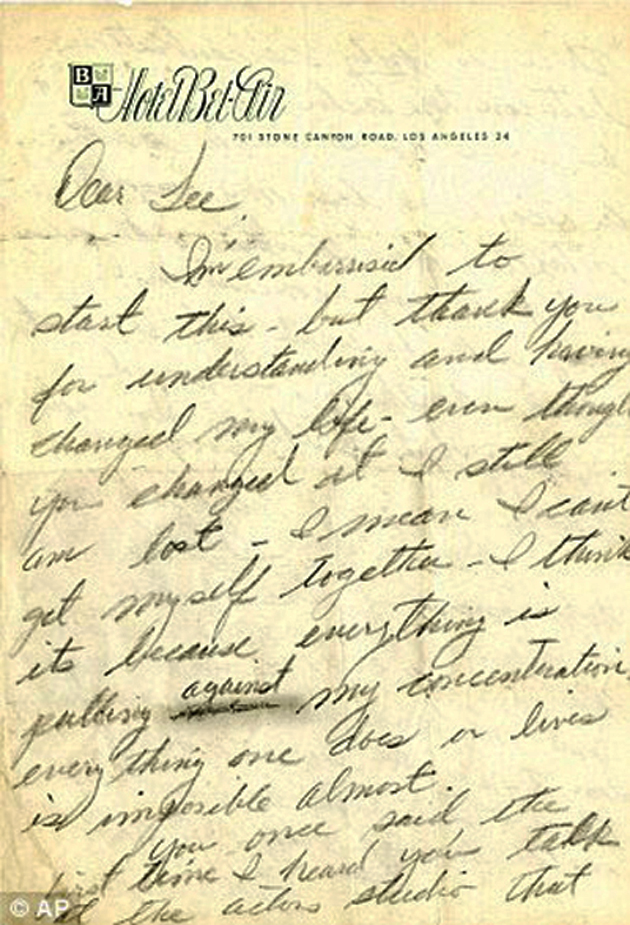 BA Hotel Bel-Air
701 STONE CANYON ROAD, LOS ANGELES 24
Dear Lee,
I'm embarrisid to
start this - but thank you
for understanding and having
changed my life - even though
you changed it I still
am lost - I mean I cant
get myself together - I think
its because everything is
pulling against my concentration,
everything one does or lives
is imposible almost.
you once said the
first time I heard you talk
at the actors studio that
© AP